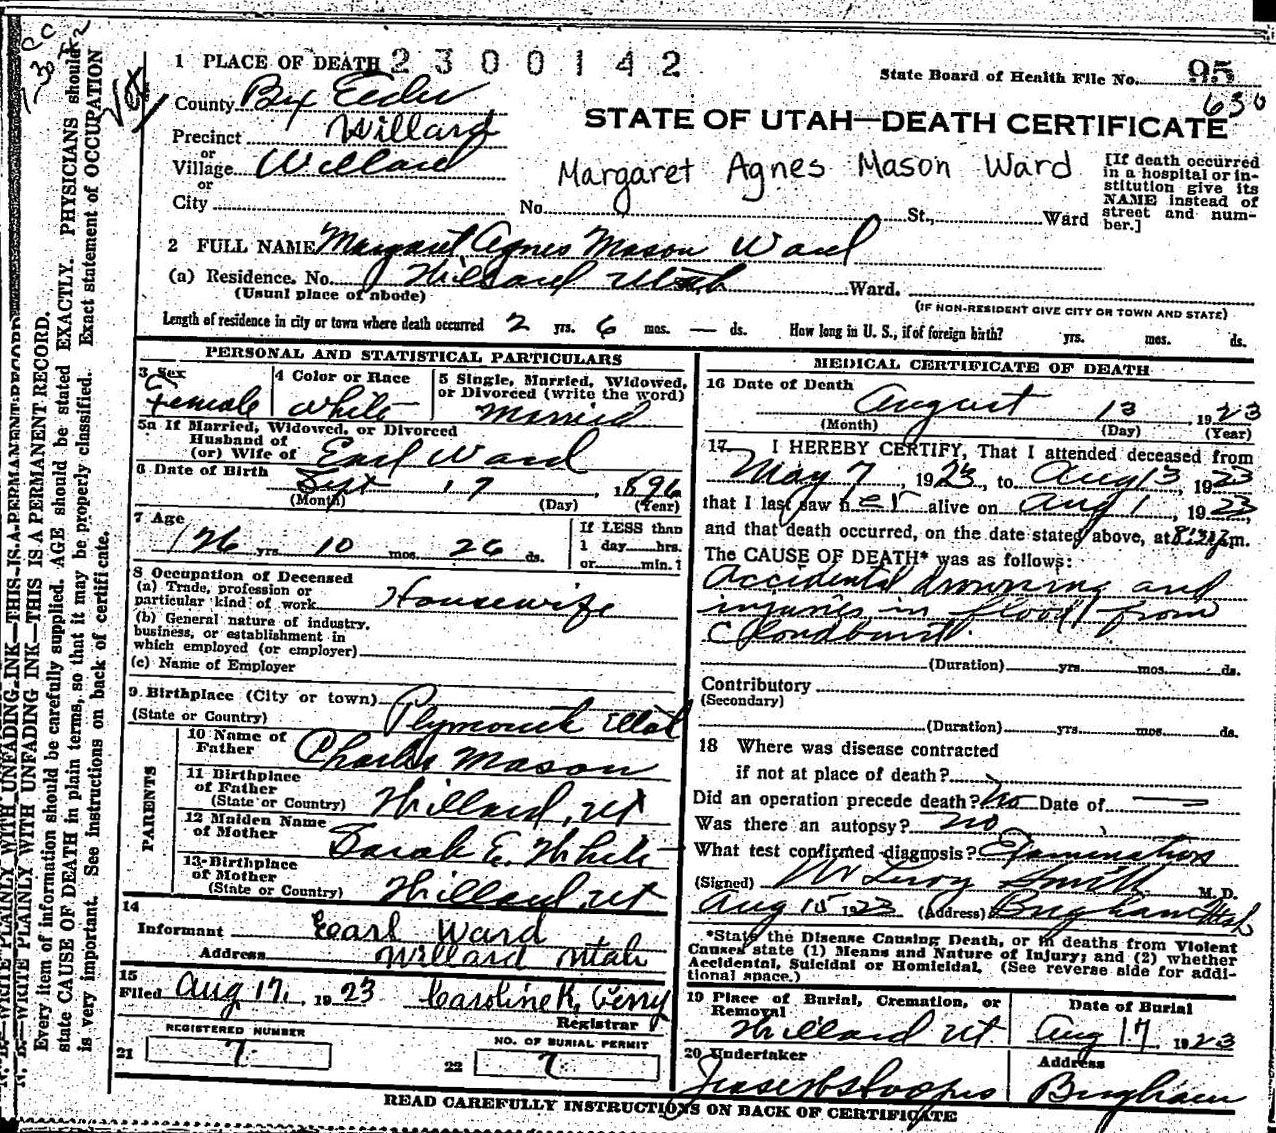 1 PLACE OF DEATH 2300142
State Board of Health File No. 95
630
County Box Elder
STATE OF UTAH—DEATH CERTIFICATE
Precinct Willard
or
Village Willard
Margaret Agnes Mason Ward
[If death occurred in a hospital or institution give its NAME instead of street and number.]
or
City No. St., Ward
2 FULL NAME Margaret Agnes Mason Ward
(a) Residence. No. Willard Utah Ward.
(Usual place of abode) (IF NON-RESIDENT GIVE CITY OR TOWN AND STATE)
Length of residence in city or town where death occurred 2 yrs. 6 mos. — ds. How long in U. S., if of foreign birth? yrs. mos. ds.
PERSONAL AND STATISTICAL PARTICULARS
3 Sex Female
4 Color or Race White
5 Single, Married, Widowed, or Divorced (write the word) Married
5a If Married, Widowed, or Divorced
Husband of
(or) Wife of Earl Ward
6 Date of Birth Sept 17, 1896
(Month) (Day) (Year)
7 Age
26 yrs. 10 mos. 26 ds.
If LESS than
1 day hrs.
or min. ?
8 Occupation of Deceased
(a) Trade, profession or
particular kind of work Housewife
(b) General nature of industry,
business, or establishment in
which employed (or employer)
(c) Name of Employer
9 Birthplace (City or town)
(State or Country) Plymouth Utah
PARENTS
10 Name of
Father Charles Mason
11 Birthplace
of Father
(State or Country) Willard, Ut
12 Maiden Name
of Mother Sarah E. White
13 Birthplace
of Mother
(State or Country) Willard, Ut
14
Informant Earl Ward
Address Willard Utah
15
Filed Aug 17, 1923 Caroline K. Perry
Registrar
REGISTERED NUMBER
21 7
NO. OF BURIAL PERMIT
22 7
MEDICAL CERTIFICATE OF DEATH
16 Date of Death
August 13, 1923
(Month) (Day) (Year)
17 I HEREBY CERTIFY, That I attended deceased from
May 7, 1923, to Aug 13, 1923
that I last saw her alive on Aug 1, 1923,
and that death occurred, on the date stated above, at m.
The CAUSE OF DEATH* was as follows:
Accidental drowning and
injuries in flood from
Cloudburst.
(Duration) yrs. mos. ds.
Contributory
(Secondary)
(Duration) yrs. mos. ds.
18 Where was disease contracted
if not at place of death?
Did an operation precede death? No Date of —
Was there an autopsy? No
What test confirmed diagnosis? Examination
(Signed) W Leroy Smith M. D.
Aug 15 1923 (Address) Brigham Utah
*State the Disease Causing Death, or in deaths from Violent
Causes state (1) Means and Nature of Injury; and (2) whether
Accidental, Suicidal or Homicidal. (See reverse side for addi-
tional space.)
19 Place of Burial, Cremation, or
Removal
Willard Ut
Date of Burial
Aug 17 1923
20 Undertaker
Address
Brigham
READ CAREFULLY INSTRUCTIONS ON BACK OF CERTIFICATE
WRITE PLAINLY WITH UNFADING INK—THIS IS A PERMANENT RECORD.
Every item of information should be carefully supplied. AGE should be stated EXACTLY. PHYSICIANS should
state CAUSE OF DEATH in plain terms, so that it may be properly classified. Exact statement of OCCUPATION
is very important. See instructions on back of certificate.